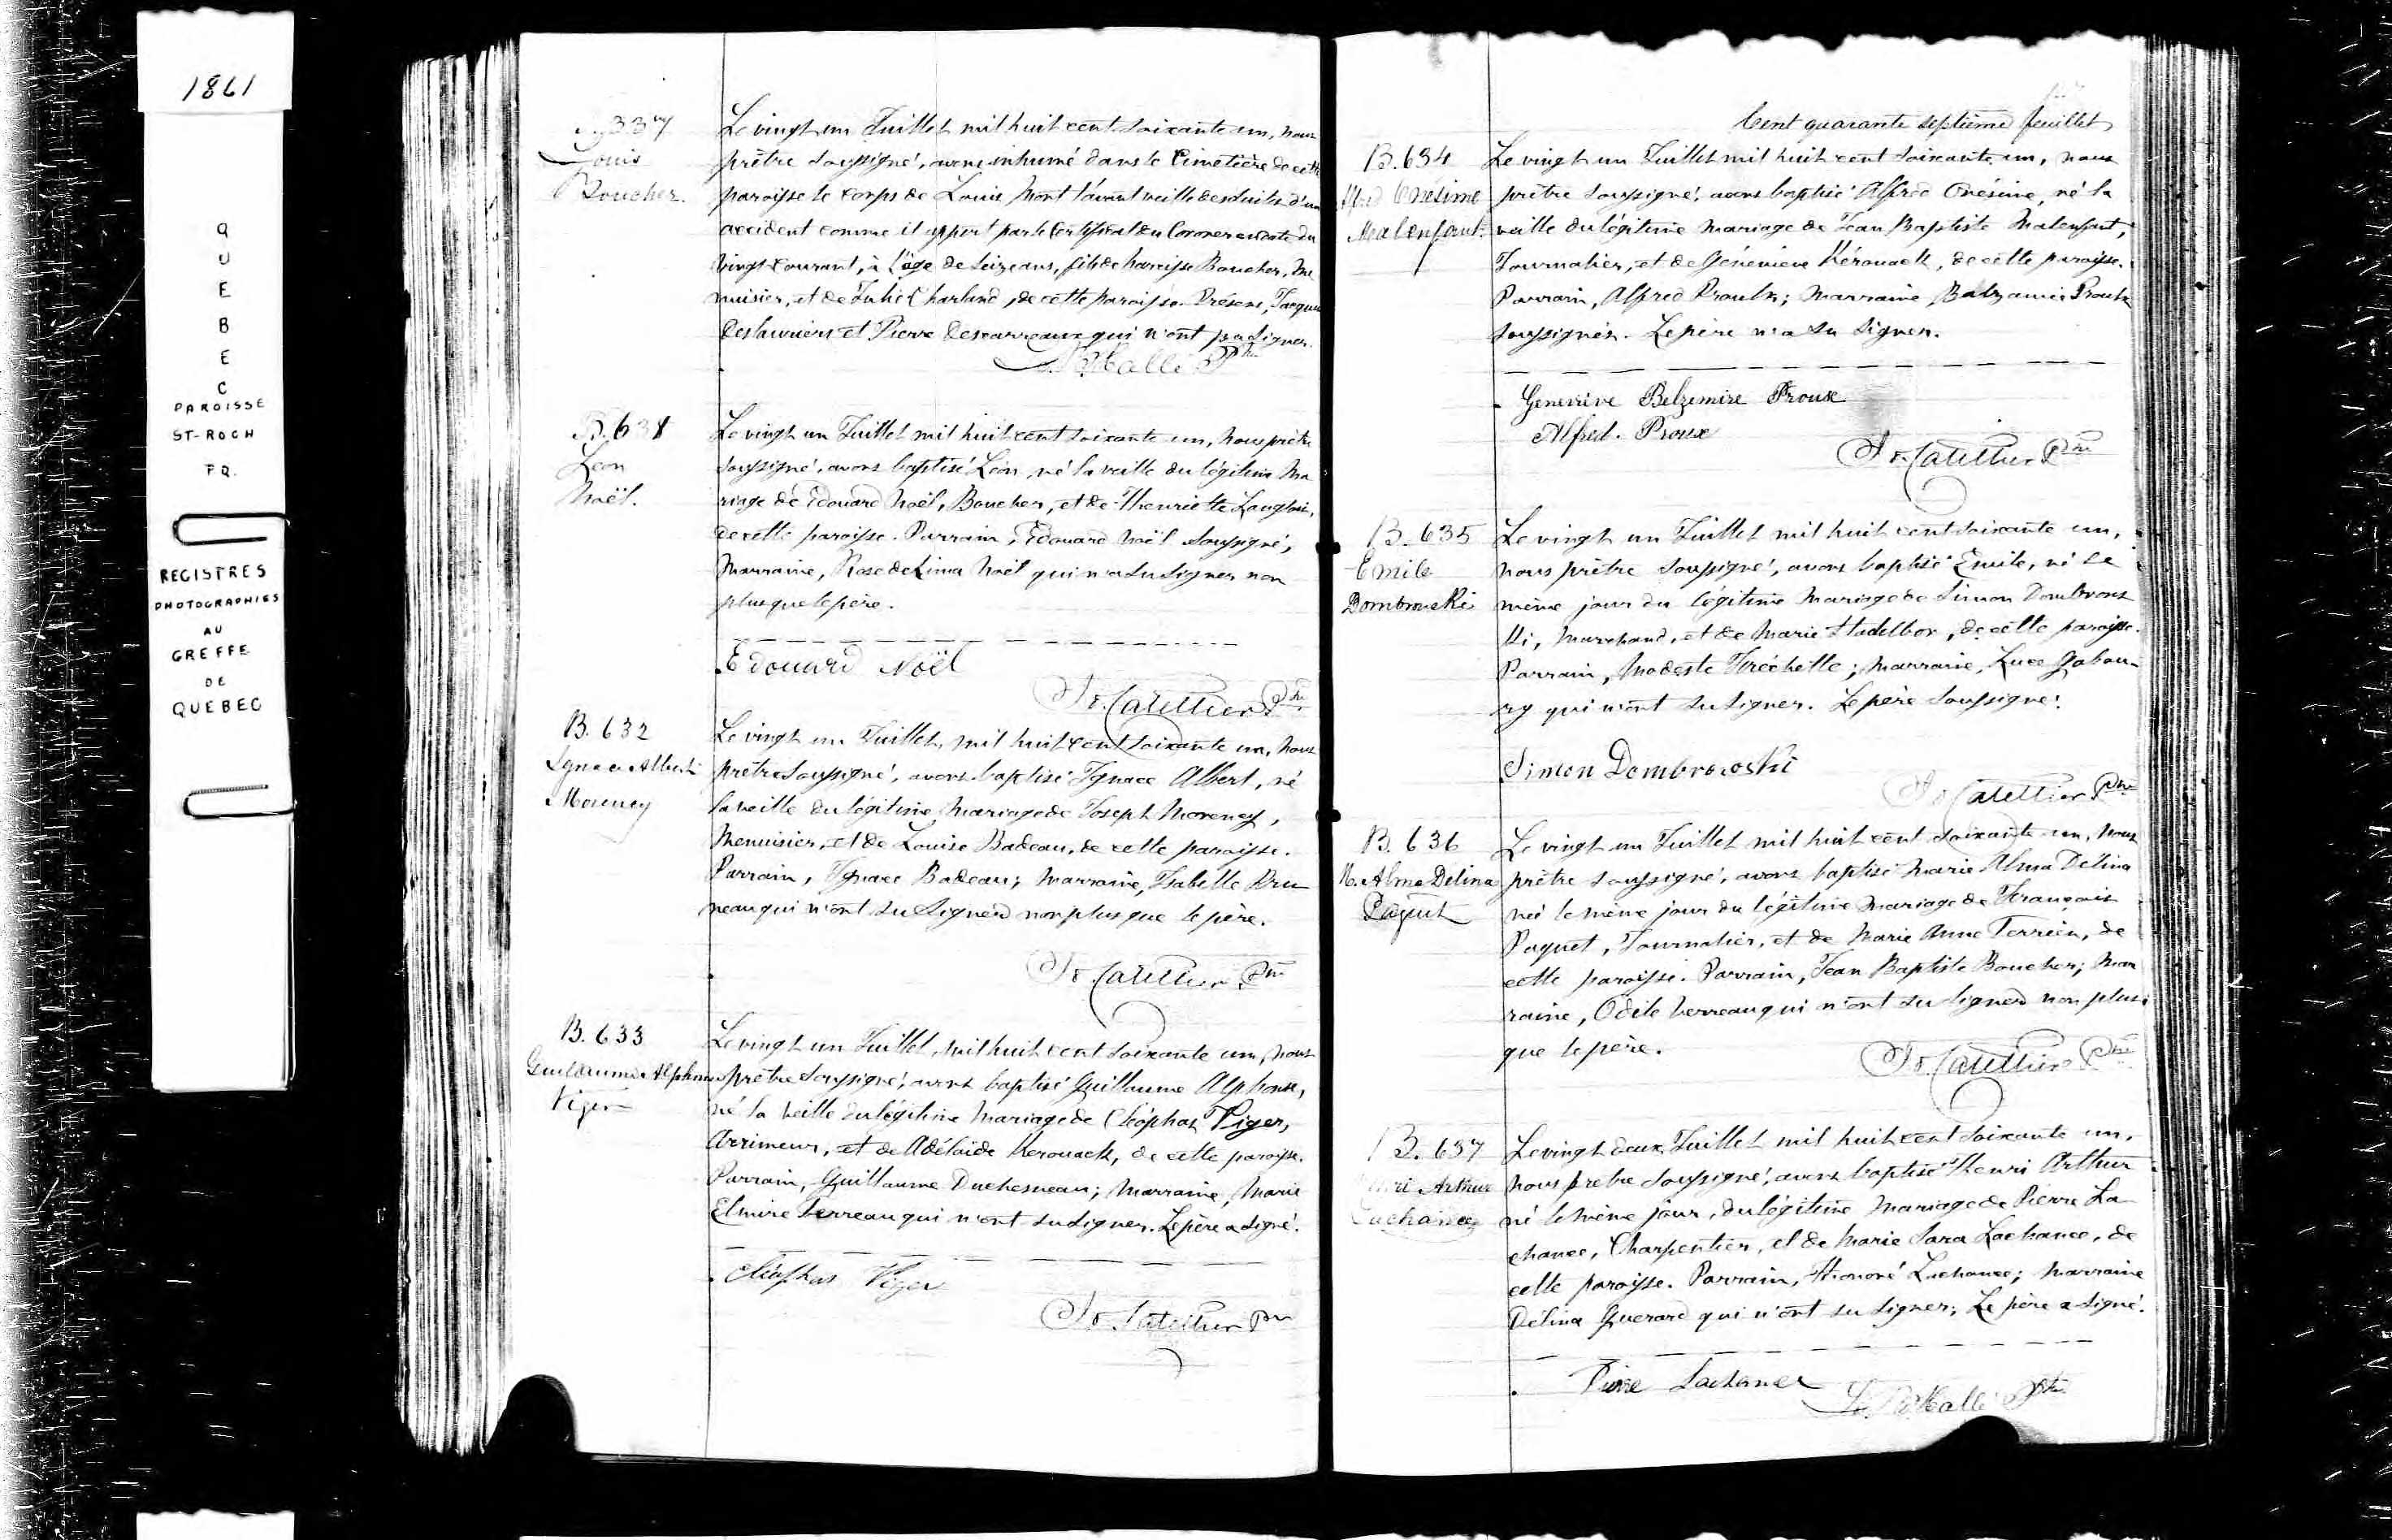 1861
QUEBEC
PAROISSE
ST-ROCH
P.Q.
REGISTRES
PHOTOGRAPHIES
AU
GREFFE
DE
QUEBEC
337
Louis
Boucher.
Le vingt un Juillet mil huit cent soixante un, nous
prêtre soussigné, avons inhumé dans le Cimetière de cette
paroisse le corps de Louis mort l'avant veille des suites d'un
accident comme il appert par le Certificat du Coroner en date du
vingt courant, à l'âge de seize ans, fils de Narcisse Boucher, Me
nuisier, et de Julie Charland, de cette paroisse. Présens, Jacques
Deslauriers et Pierre Descarreaux qui n'ont pu signer.
Hallé Ptre
B. 631
Léon
Noël.
Le vingt un Juillet mil huit cent soixante un, nous prêtre
soussigné, avons baptisé Léon, né la veille du légitime Ma
riage de Edouard Noël, Boucher, et de Henriette Langlois,
de cette paroisse. Parrain, Edouard Noël soussigné,
Marraine, Rose de Lima Noël qui n'a su signer non
plus que le père.
Edouard Noël
Ptre
B. 632
Ignace Albert
Morency
Le vingt un Juillet, mil huit cent soixante un, nous
prêtre soussigné, avons baptisé Ignace Albert, né
la veille du légitime Mariage de Joseph Morency,
Menuisier, et de Louise Badeau, de cette paroisse.
Parrain, Ignace Badeau; Marraine, Isabelle Bru
neau qui n'ont su signer non plus que le père.
Ptre
B. 633
Guillaume Alphonse
Viger
Le vingt un Juillet, mil huit cent soixante un, nous
prêtre soussigné, avons baptisé Guillaume Alphonse,
né la veille du légitime Mariage de Cléophas Viger,
Arrimeur, et de Adélaïde Kerouack, de cette paroisse.
Parrain, Guillaume Duchesneau; Marraine, Marie
Elmire Verreau qui n'ont su signer. Le père a signé.
Cléophas Viger
Ptre
Cent quarante septième feuillet
B. 634
Alfred Onésime
Malenfant.
Le vingt un Juillet mil huit cent soixante un, nous
prêtre soussigné, avons baptisé Alfred Onésime, né la
veille du légitime Mariage de Jean Baptiste Malenfant,
Journalier, et de Géneviève Kérouack, de cette paroisse.
Parrain, Alfred Proulx; Marraine, Proulx
soussignés. Le père n'a su signer.
Genevieve Belzemire Proux
Alfred. Proux
Ptre
B. 635
Emile
Dombrouski
Le vingt un Juillet mil huit cent soixante un,
nous prêtre soussigné, avons baptisé Emile, né le
même jour du légitime Mariage de Simon Dombrows
ki, Marchand, et de Marie, de cette paroisse.
Parrain, Modeste Fréchette; Marraine, Luce Gabou-
ry qui n'ont su signer. Le père soussigné.
Simon Dombrowski
Ptre
B. 636
M. Alma Délina
Paquet
Le vingt un Juillet mil huit cent soixante un, nous
prêtre soussigné, avons baptisé Marie Alma Délina
née le même jour du légitime Mariage de François
Paquet, Journalier, et de Marie Anne Terrien, de
cette paroisse. Parrain, Jean Baptiste Boucher; Mar
raine, Odile Verreau qui n'ont su signer non plus
que le père.
Ptre
B. 637
Henri Arthur
Lachance
Le vingt deux Juillet mil huit cent soixante un,
nous prêtre soussigné, avons baptisé Henri Arthur
né le même jour, du légitime Mariage de Pierre La
chance, Charpentier, et de Marie Sara Lachance, de
cette paroisse. Parrain, Honoré Lachance; Marraine
Délina Guerard qui n'ont su signer; Le père a signé.
Pierre Lachance
Hallé Ptre